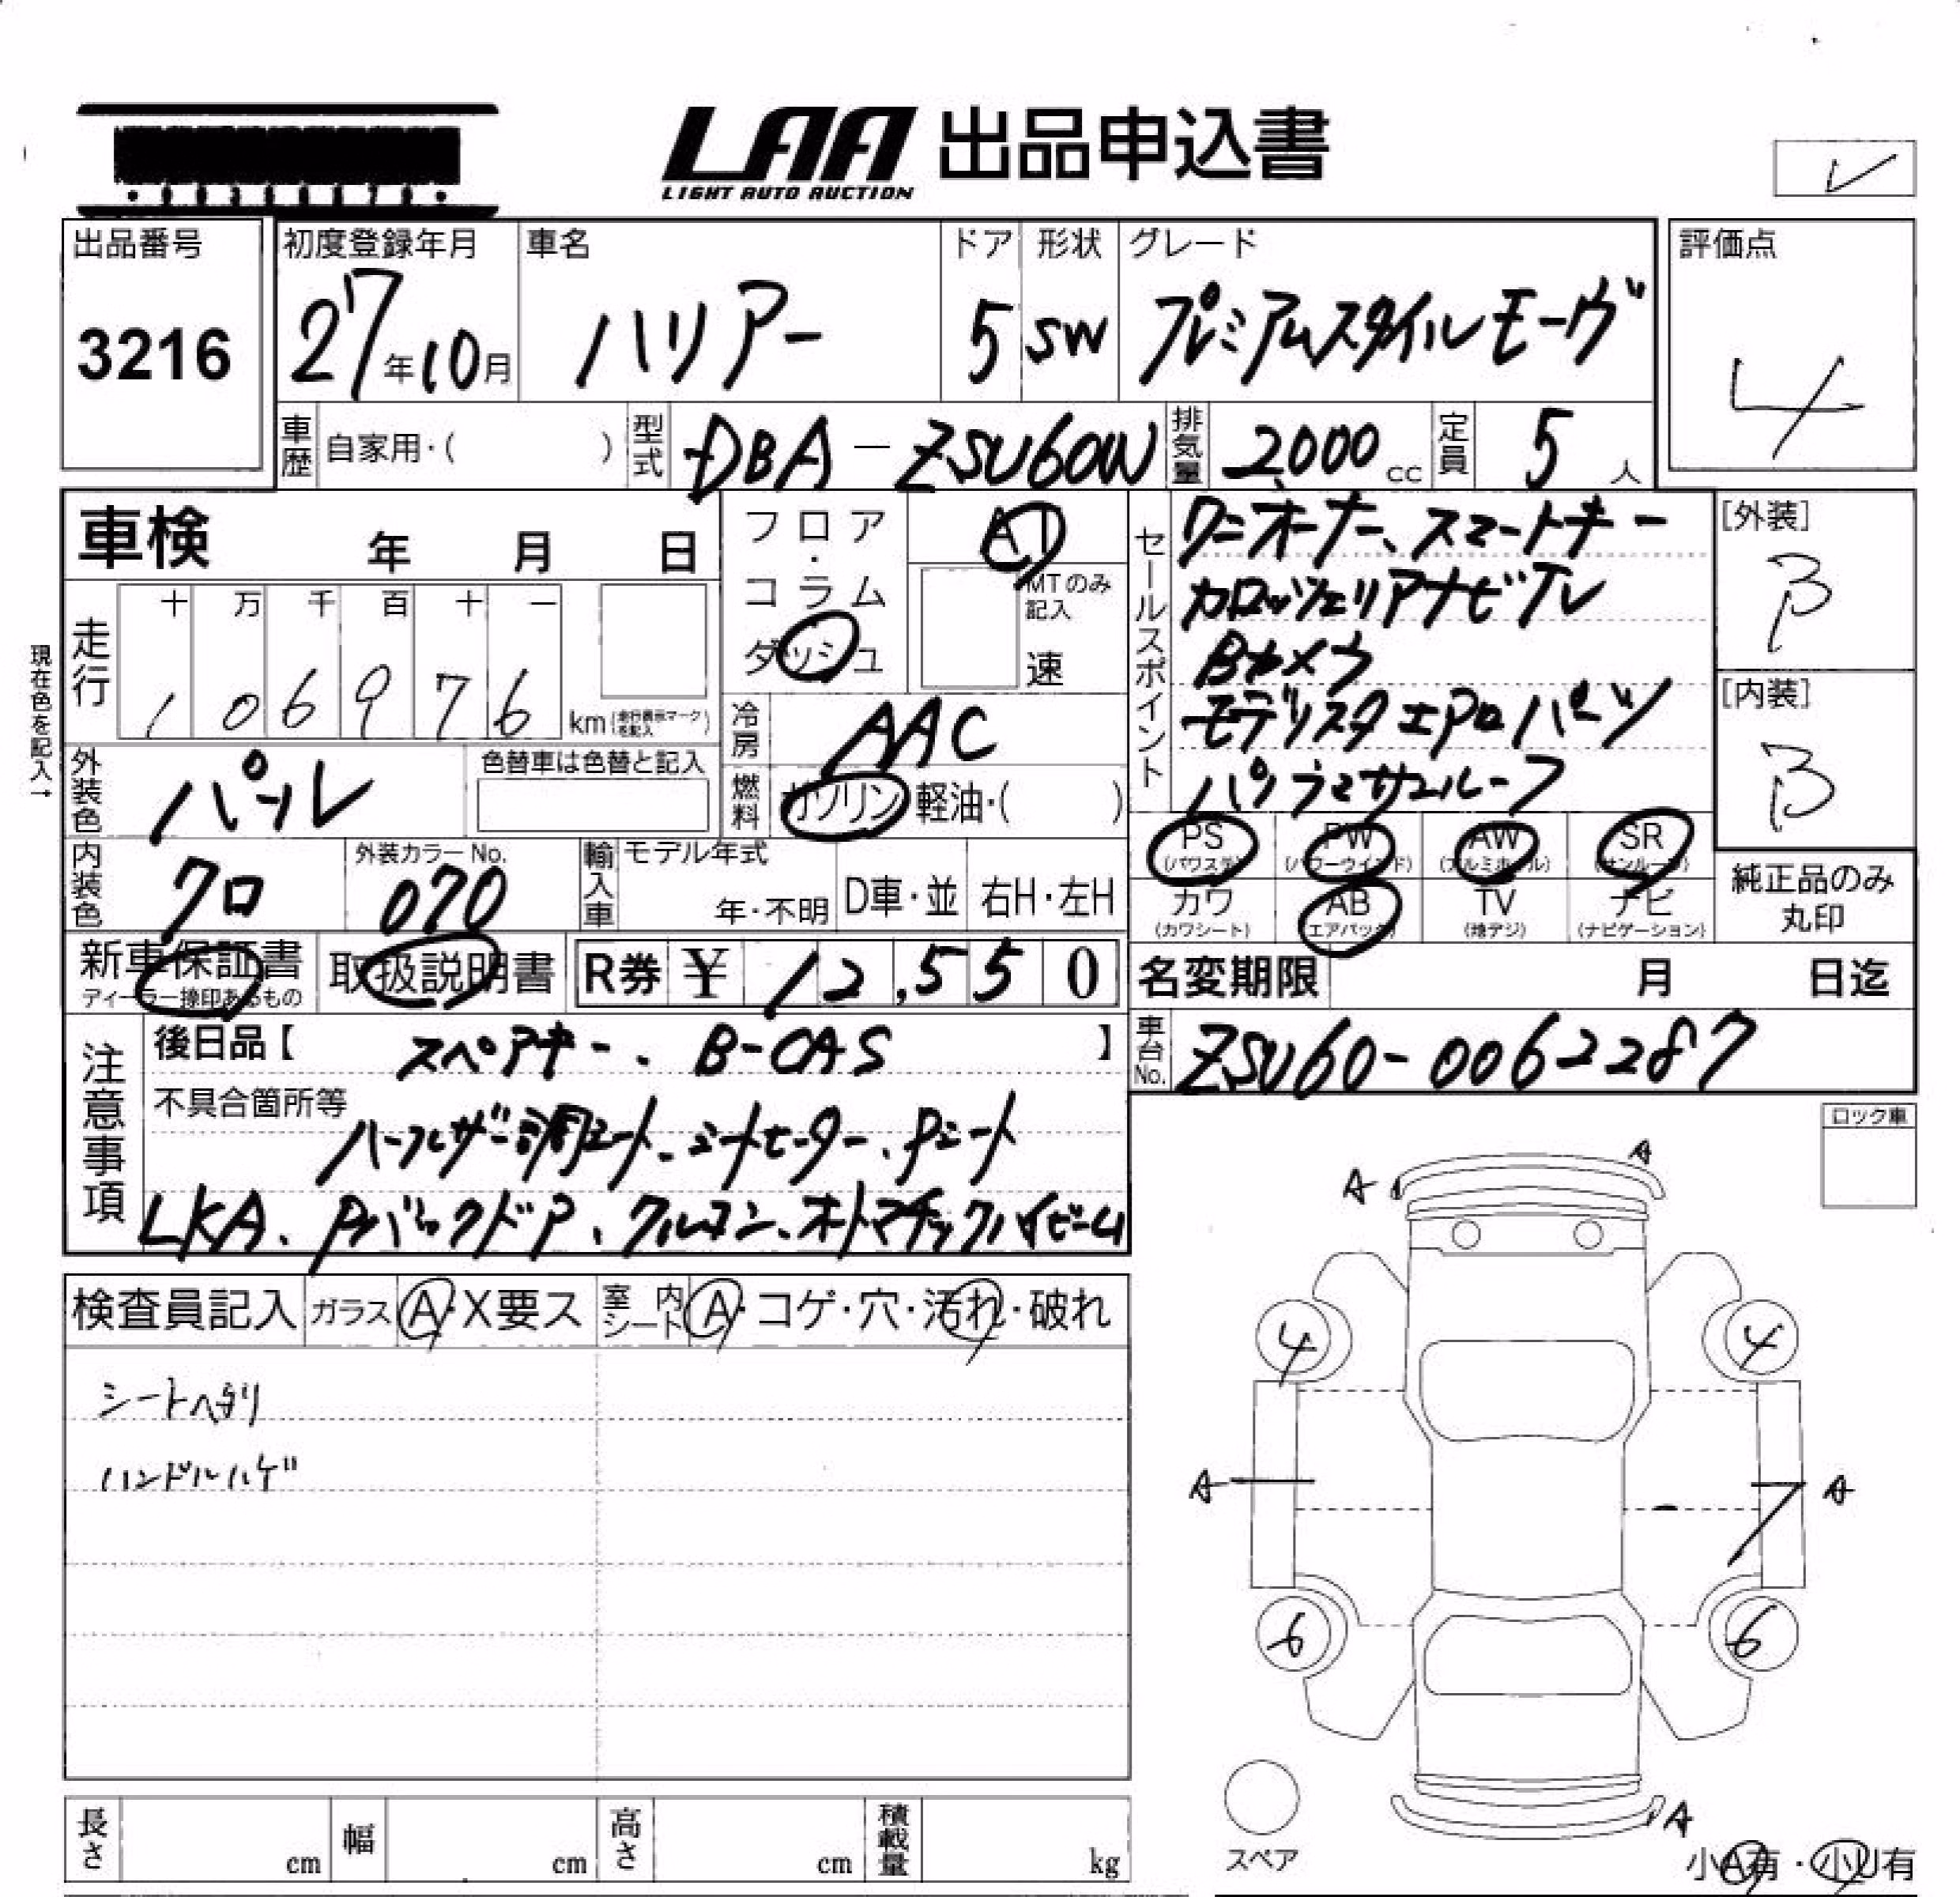 LAA 出品申込書
LIGHT AUTO AUCTION
レ
出品番号 初度登録年月 車名 ドア 形状 グレード 評価点
3216 27年10月 ハリアー 5 SW プレミアムスタイルモーヴ 4
車歴 自家用・( ) 型式 DBA-ZSU60W 排気量 2,000cc 定員 5人
車検 年 月 日
フロア・コラム ダッシュ AT
MTのみ記入 速
セールスポイント
ワンオーナー、スマートキー
カロッツェリアナビTV
Bカメラ
モデリスタエアロパーツ
パノラマサンルーフ
[外装] B
[内装] B
現在色を記入→
走行 十 万 千 百 十 一
106976 km (走行表示マークを記入)
冷房 AAC
外装色 パール 色替車は色替と記入
燃料 ガソリン 軽油・( )
内装色 クロ 外装カラーNo. 070
輸入車 モデル年式 年・不明 D車・並 右H・左H
PS (パワステ) PW (パワーウインド) AW (アルミホイール) SR (サンルーフ)
カワ (カワシート) AB (エアバック) TV (地デジ) ナビ (ナビゲーション)
純正品のみ丸印
新車保証書 ディーラー捺印あるもの 取扱説明書 R券 ¥12,550
名変期限 月 日迄
注意事項 後日品【 スペアキー、B-CAS 】
車台No. ZSU60-0062287
不具合箇所等
ハーフレザー調シート、シートヒーター、Pシート
LKA、Pバックドア、クルコン、オートマチックハイビーム
ロック車
検査員記入 ガラス A・X要ス 室内シート A・コゲ・穴・汚れ・破れ
シートヘタリ
ハンドルハゲ
A A
4 4
A A
6 6
A
スペア
小A有・小U有
長さ cm 幅 cm 高さ cm 積載量 kg